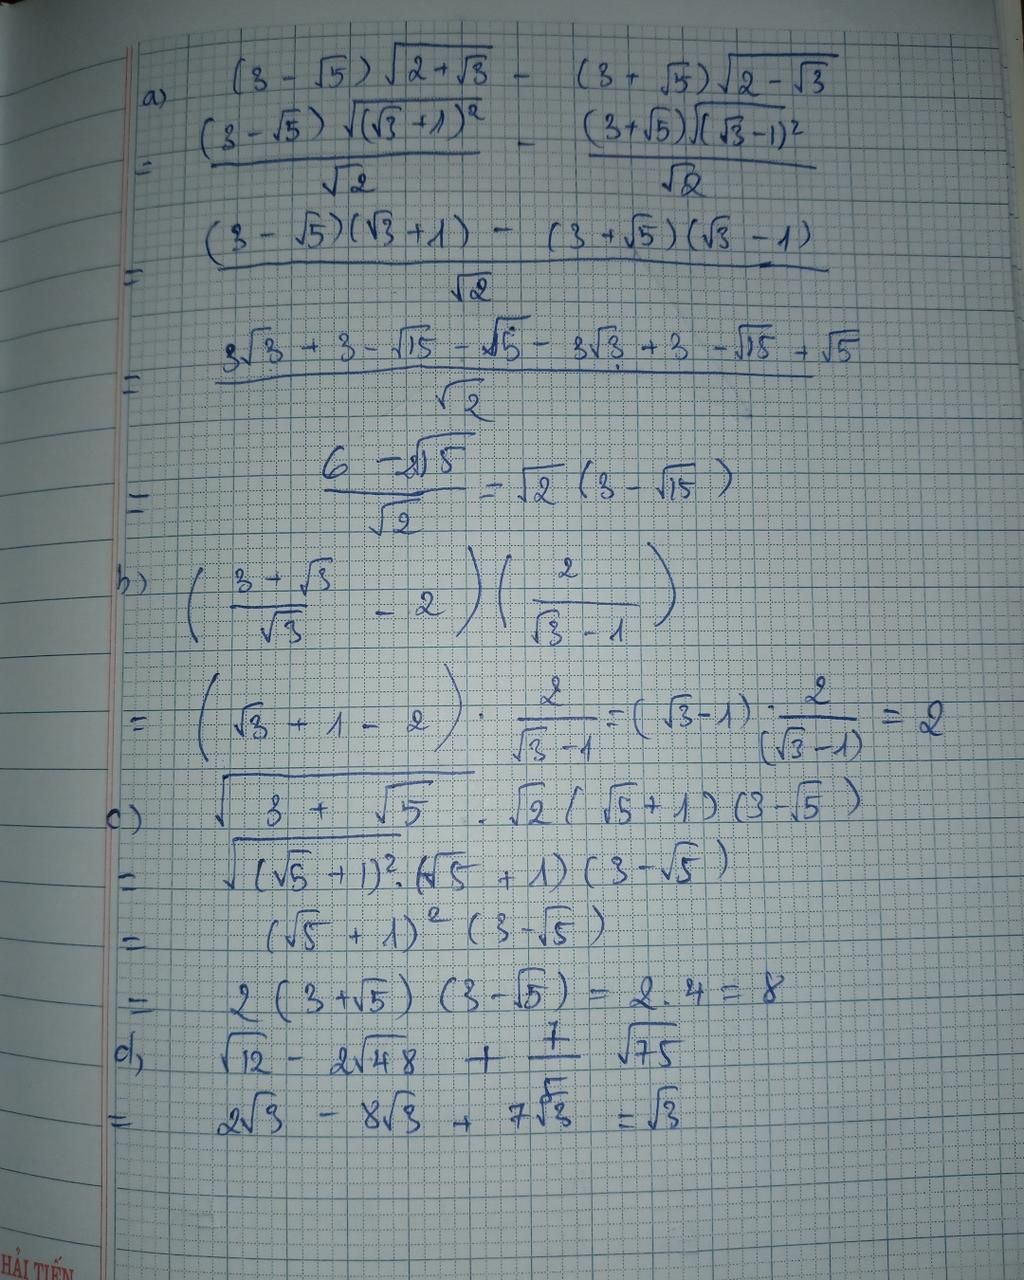 a) (3 - √5) √(2 + √3) - (3 + √5) √(2 - √3)
= ((3 - √5) √((√3 + 1)²))/√2 - ((3 + √5) √((√3 - 1)²))/√2
= ((3 - √5)(√3 + 1) - (3 + √5)(√3 - 1))/√2
= (3√3 + 3 - √15 - √5 - 3√3 + 3 - √15 + √5)/√2
= (6 - 2√15)/√2 = √2 (3 - √15)
b) ((3 + √3)/√3 - 2)(2/(√3 - 1))
= (√3 + 1 - 2) . 2/(√3 - 1) = (√3 - 1) . 2/(√3 - 1) = 2
c) √(3 + √5) . √2 (√5 + 1)(3 - √5)
= √((√5 + 1)²) . (√5 + 1)(3 - √5)
= (√5 + 1)² (3 - √5)
= 2 (3 + √5) (3 - √5) = 2 . 4 = 8
d, √12 - 2√48 + 7/5 √75
= 2√3 - 8√3 + 7√3 = √3
HẢI TIẾN